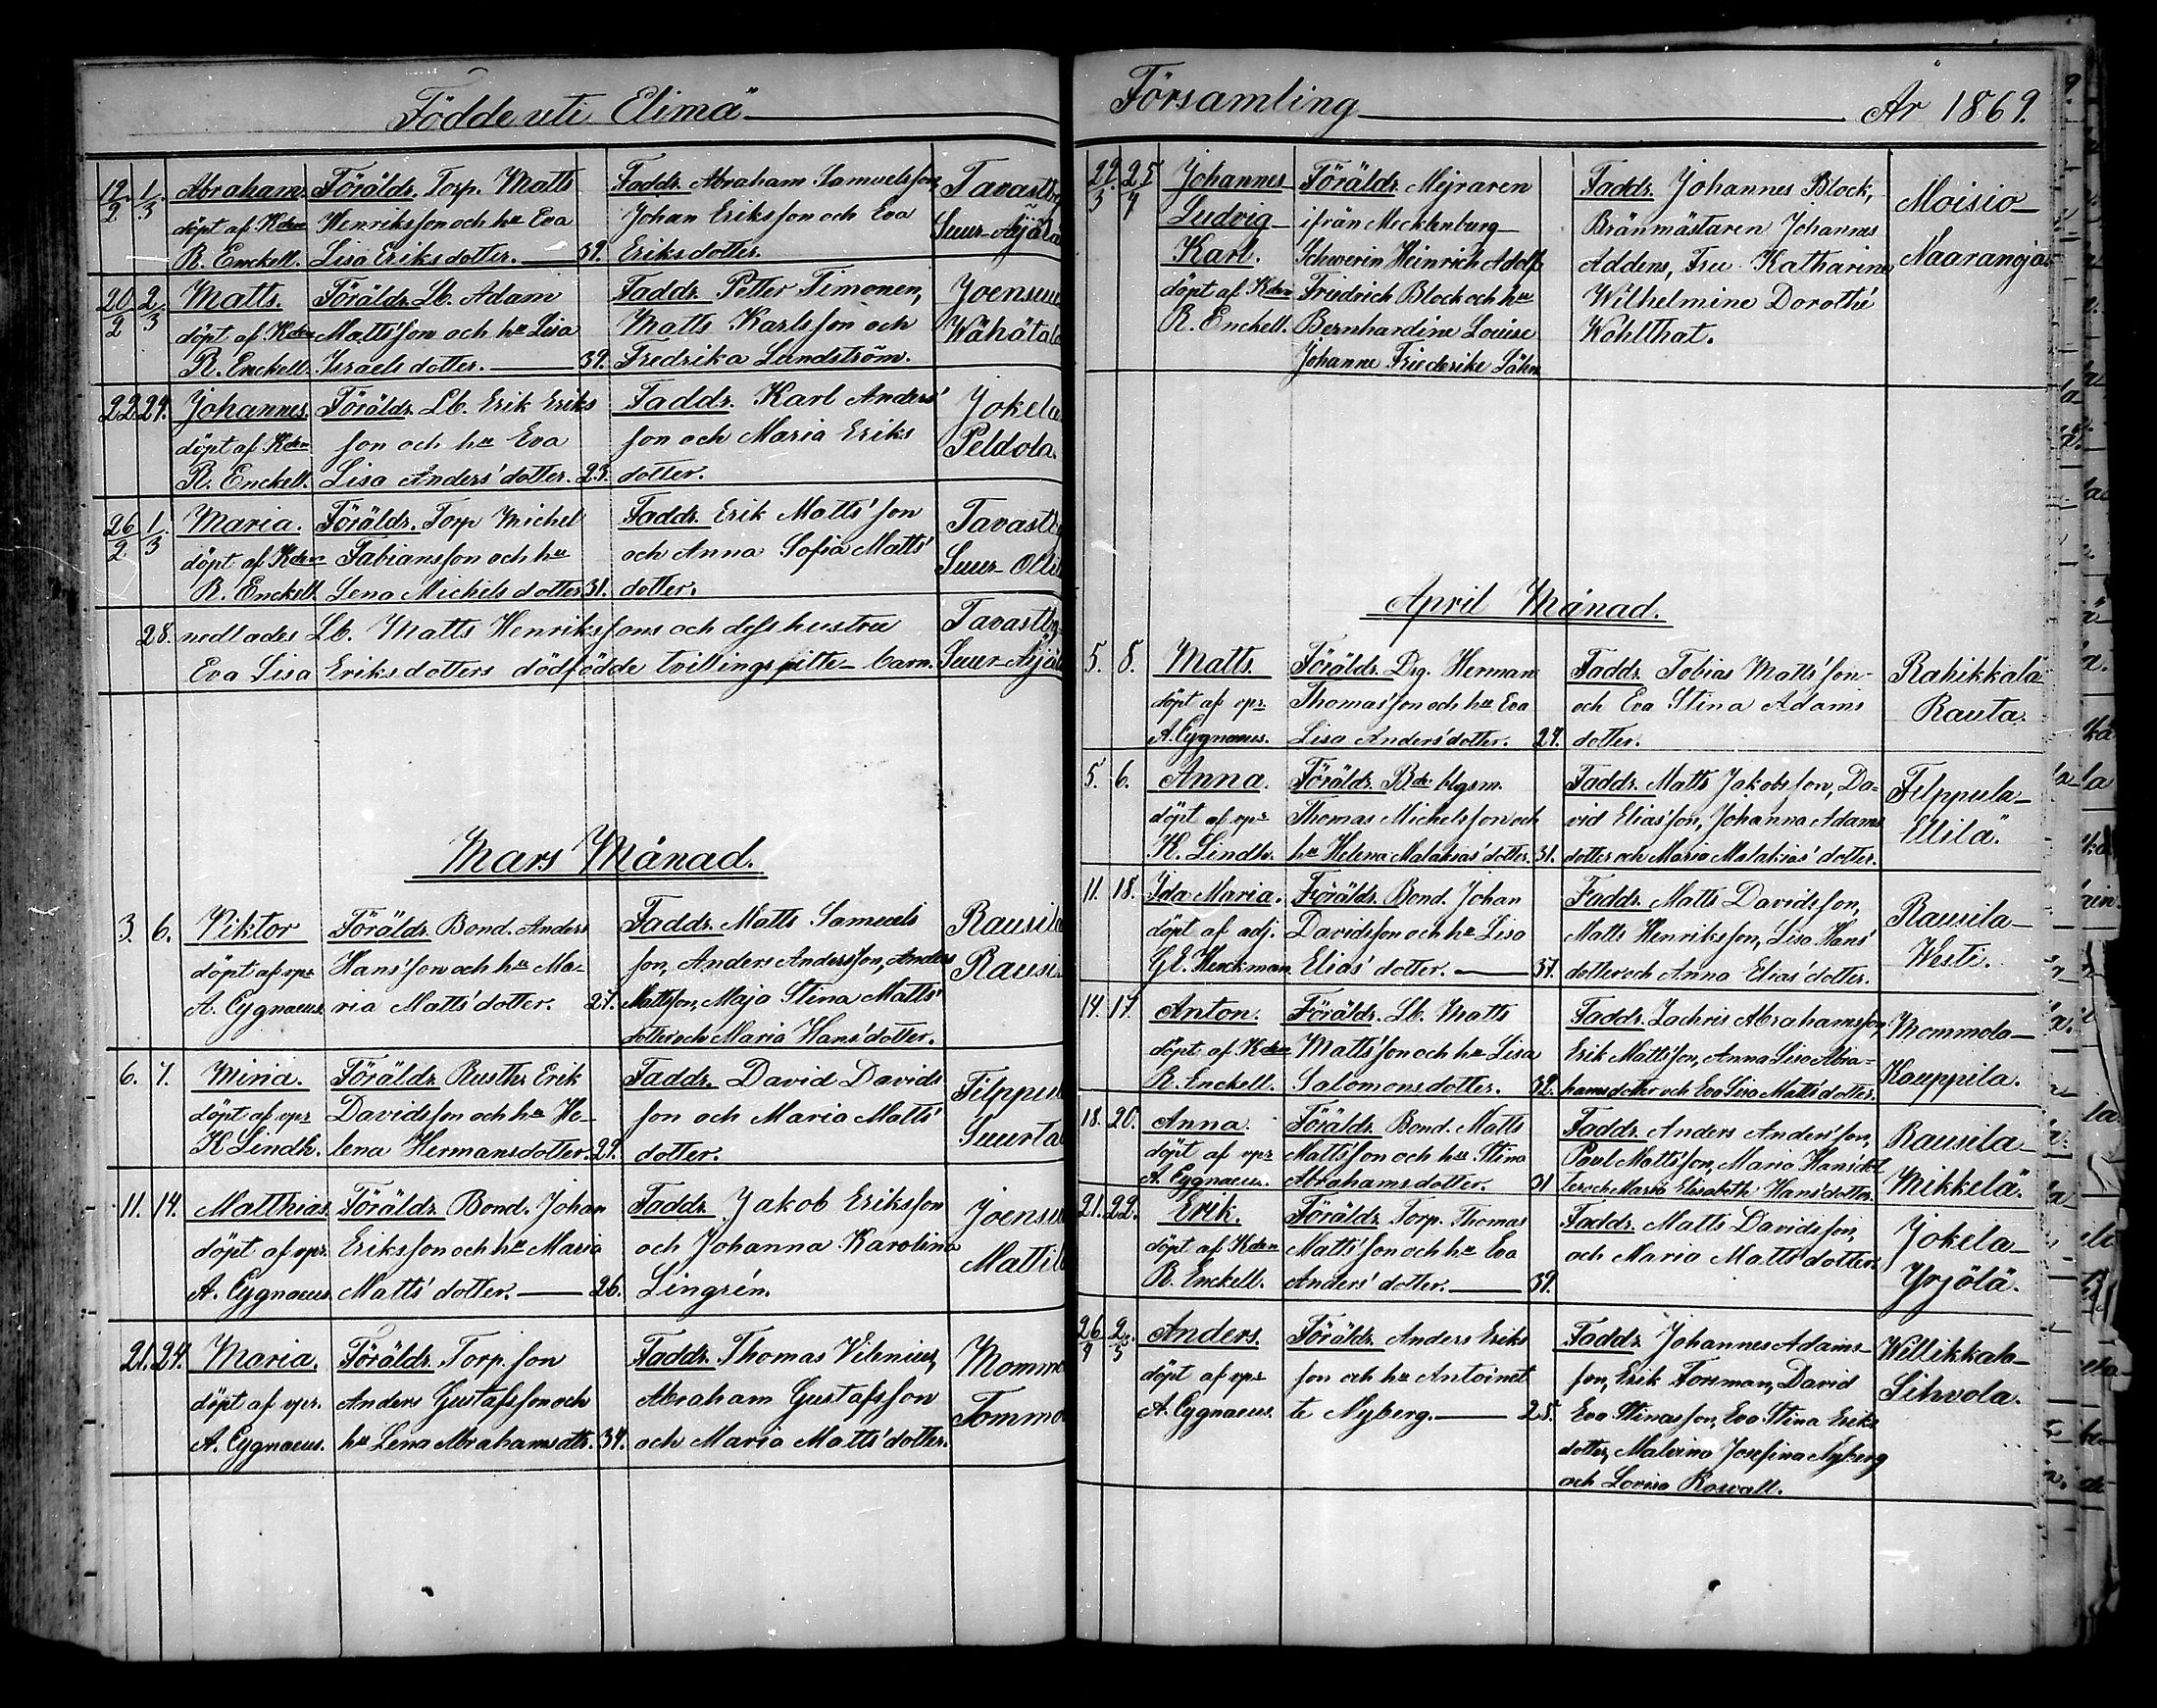 Födde uti Elimä
12/2 1/3 Abraham. Föräldr. Torp. Matts Faddr. Abraham Samuelsson, Tavastby
döpt af Kden Henriksson och hu Eva Johan Eriksson och Eva Suur-Äijälä
R. Enckell. Lisa Eriksdotter. 39. Eriksdotter.
20/2 2/3 Matts. Föräldr. Lb. Adam Faddr. Petter Timonen, Joensuu
döpt af Kden Matts'son och hu Lisa Matts Karlsson och Wähätalo
R. Enckell. Israelsdotter. 39. Fredrika Lundström.
22 24. Johannes. Föräldr. Lb. Erik Eriks Faddr. Karl Anders' Jokela
döpt af Kden son och hu Eva son och Maria Eriks Peldola.
R. Enckell. Lisa Anders'dotter. 23. dotter.
26/2 1/3 Maria. Föräldr. Torp Michel Faddr. Erik Matts'son Tavastby
döpt af Kden Fabiansson och hu och Anna Sofia Matts' Suur-Olli
R. Enckell. Lena Michelsdotter 31. dotter.
28. nedlades Lb. Matts Henrikssons och dess hustru Tavastby
Eva Lisa Eriksdotters dödfödde tvillings gitte-barn. Suur-Äijälä
Mars Månad.
3. 6. Viktor Föräldr. Bond. Anders Faddr. Matts Samuels Rausila
döpt af vpr Hans'son och hu Ma- son, Anders Andersson, Anders Rausi
A. Cygnaeus. ria Matts'dotter. 27. Mattsson, Maja Stina Matts'
dotter och Maria Hans'dotter.
6. 7. Miria. Föräldr. Rusth. Erik Faddr. David Davids Filppula
döpt af vpr Davidsson och hu He- son och Maria Matts' Suurtalo
K Lindh. lena Hermansdotter. 29. dotter.
11. 14. Matthias. Föräldr. Bond. Johan Faddr. Jakob Eriksson Joensuu
döpt af vpr. Eriksson och hu Maria och Johanna Karolina Mattila
A. Cygnaeus. Matts'dotter. 26. Lingrén.
21. 24. Maria. Föräldr. Torp. son Faddr. Thomas Vilenius, Mommo
döpt af vpr. Anders Gustafsson och Abraham Gustafsson Tommo
A. Cygnaeus. hu Lena Abrahamsdtr. 34. och Maria Matts'dotter.
Församling År 1869.
29/3 25/4 Johannes Föräldr. Mejraren Faddr. Johannes Block, Moisio-
Ludvig ifrån Mecklenburg- Bränmästaren Johannes Naaranoja
Karl. Schwerin Heinrich Adolf Addens, Fru Katharine
döpt af Kden Friedrich Block och hu Wilhelmine Dorothé
R. Enckell. Bernhardine Louise Wohlthat.
Johanne Friederike Lähn
April Månad.
5. 8. Matts. Föräldr. Drg. Herman Faddr. Tobias Matts'son Rahikkala
döpt af vpr. Thomas'son och hu Eva och Eva Stina Adams Rauta.
A. Cygnaeus. Lisa Anders'dotter. 24. dotter.
5. 6. Anna. Föräldr. Bde blgsm. Faddr. Matts Jakobsson, Da- Filppula-
döpt af vpr Thomas Michelsson och vid Elias'son, Johanna Adams Ellilä.
K. Lindh. hu Helena Malakias'dotter. 31. dotter och Maria Malakias'dotter.
11. 18. Ida Maria. Föräldr. Bond. Johan Faddr. Matts Davidsson, Rausila-
döpt af adj. Davidsson och hu Lisa Matts Henriksson, Lisa Hans' Westi.
G.E. Werckman Elias'dotter. 37. dotter och Anna Elias'dotter.
14. 17. Anton. Föräldr. Lb. Matts Faddr. Zachris Abrahamsson, Mommola-
döpt af Kden Matts'son och hu Lisa Erik Matts'son, Anna Lisa Abra- Kauppila.
R. Enckell. Salomonsdotter. 32. hamsdotter och Eva Lisa Matts'dotter.
18. 20. Anna. Föräldr. Bond. Matts Faddr. Anders Anders'son, Rausila-
döpt af vpr Matts'son och hu Stina Paul Matts'son, Maria Hans'dot Mikkelä.
A. Cygnaeus. Abrahamsdotter. 31 ter och Maria Elisabeth Hans'dotter.
21. 22. Erik. Föräldr. Torp. Thomas Faddr. Matts Davidsson, Jokela-
döpt af Kden Matts'son och hu Eva och Maria Matts'dotter. Yrjölä.
R. Enckell. Anders'dotter. 39.
26/4 2/5 Anders. Föräldr. Anders Eriks Faddr. Johannes Adams- Willikkala-
döpt af vpr son och hu Antoinet son, Erik Forsman, David Sihvola.
A. Cygnaeus. te Nyberg. 25. Eva Stinasson, Eva Stina Eriks
dotter, Malvina Josefina Nyberg
och Lovisa Rosvall.